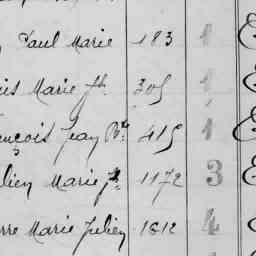 Paul Marie 183 1
is Marie Jh 305 1
ençois Jean Bte 415 1
lien Marie Jh 1172 3
rre Marie Julien 1812 4